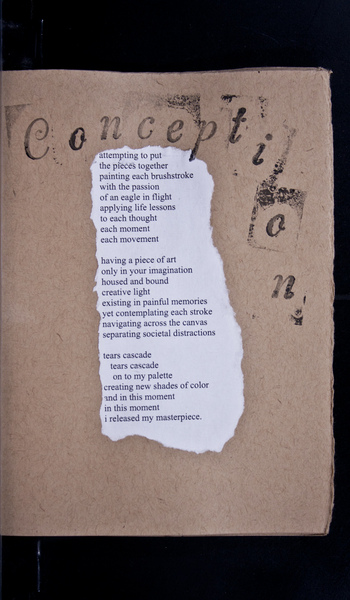 Conception
attempting to put
the pieces together
painting each brushstroke
with the passion
of an eagle in flight
applying life lessons
to each thought
each moment
each movement
having a piece of art
only in your imagination
housed and bound
creative light
existing in painful memories
yet contemplating each stroke
navigating across the canvas
separating societal distractions
tears cascade
tears cascade
on to my palette
creating new shades of color
and in this moment
in this moment
i released my masterpiece.